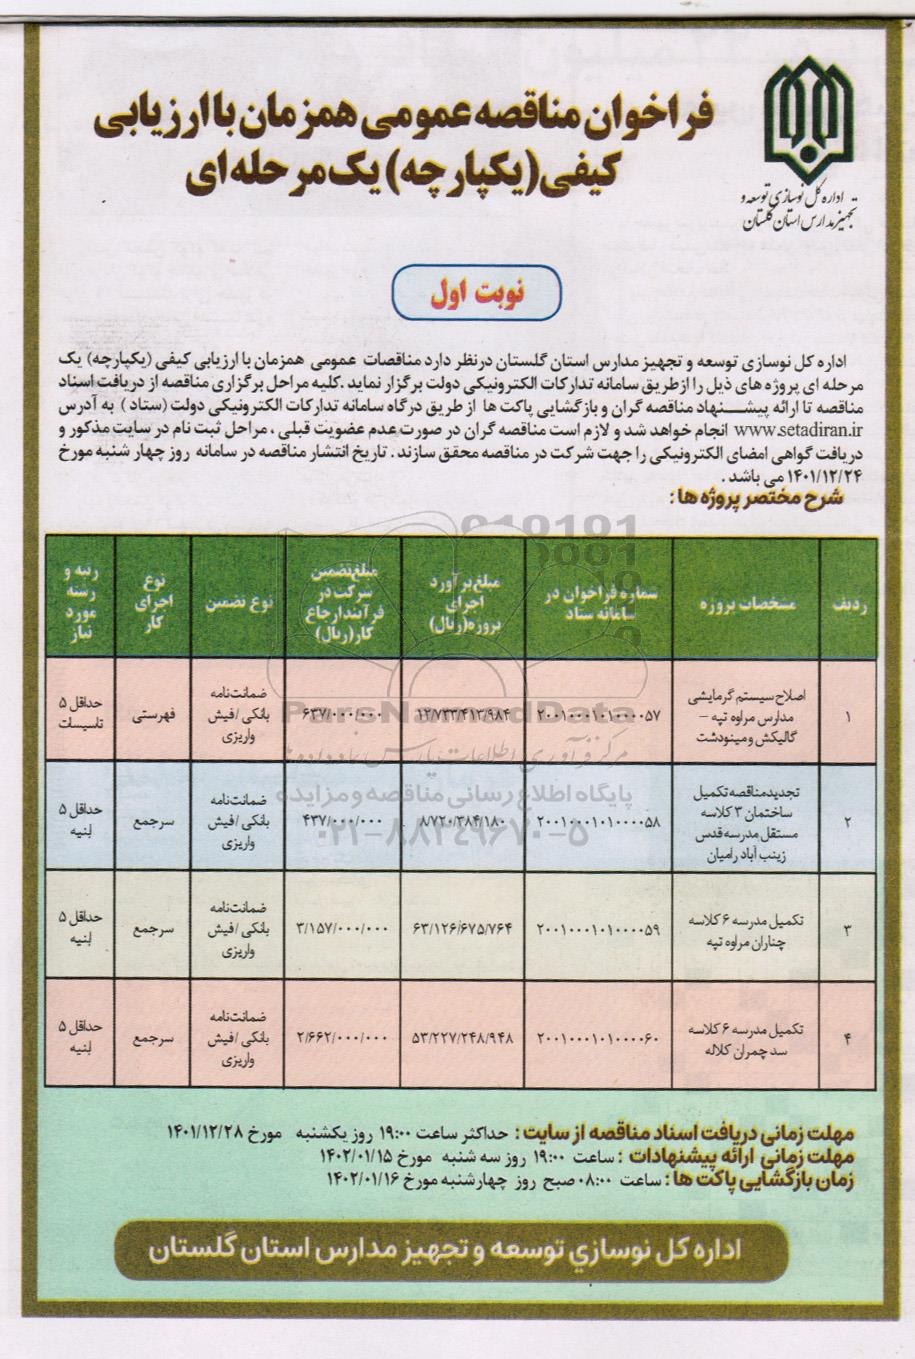 فراخوان مناقصه عمومی همزمان با ارزیابی
کیفی (یکپارچه) یک مرحله ای
اداره کل نوسازی توسعه و
تجهیز مدارس استان گلستان
نوبت اول
اداره کل نوسازی توسعه و تجهیز مدارس استان گلستان درنظر دارد مناقصات عمومی همزمان با ارزیابی کیفی (یکپارچه) یک
مرحله ای پروژه های ذیل را از طریق سامانه تدارکات الکترونیکی دولت برگزار نماید .کلیه مراحل برگزاری مناقصه از دریافت اسناد
مناقصه تا ارائه پیشنهاد مناقصه گران و بازگشایی پاکت ها از طریق درگاه سامانه تدارکات الکترونیکی دولت (ستاد ) به آدرس
www.setadiran.ir انجام خواهد شد و لازم است مناقصه گران در صورت عدم عضویت قبلی ، مراحل ثبت نام در سایت مذکور و
دریافت گواهی امضای الکترونیکی را جهت شرکت در مناقصه محقق سازند . تاریخ انتشار مناقصه در سامانه روز چهار شنبه مورخ
۱۴۰۱/۱۲/۲۴ می باشد .
شرح مختصر پروژه ها :
ردیف | مشخصات پروژه | شماره فراخوان در سامانه ستاد | مبلغ برآورد اجرای پروژه(ریال) | مبلغ تضمین شرکت در فرآیند ارجاع کار(ریال) | نوع تضمین | نوع اجرای کار | رتبه و رشته مورد نیاز
۱ | اصلاح سیستم گرمایشی مدارس مراوه تپه - گالیکش و مینودشت | ۲۰۰۱۰۰۰۱۰۱۰۰۰۰۵۷ | ۱۲/۷۳۳/۴۱۲/۹۸۴ | ۶۳۷/۰۰۰/۰۰۰ | ضمانت نامه بانکی /فیش واریزی | فهرستی | حداقل ۵ تاسیسات
۲ | تجدید مناقصه تکمیل ساختمان ۳ کلاسه مستقل مدرسه قدس زینب آباد رامیان | ۲۰۰۱۰۰۰۱۰۱۰۰۰۰۵۸ | ۸/۷۲۰/۳۸۴/۱۸۰ | ۴۳۷/۰۰۰/۰۰۰ | ضمانت نامه بانکی /فیش واریزی | سرجمع | حداقل ۵ ابنیه
۳ | تکمیل مدرسه ۶ کلاسه چناران مراوه تپه | ۲۰۰۱۰۰۰۱۰۱۰۰۰۰۵۹ | ۶۳/۱۲۶/۶۷۵/۷۶۴ | ۳/۱۵۷/۰۰۰/۰۰۰ | ضمانت نامه بانکی /فیش واریزی | سرجمع | حداقل ۵ ابنیه
۴ | تکمیل مدرسه ۶ کلاسه سد چمران کلاله | ۲۰۰۱۰۰۰۱۰۱۰۰۰۰۶۰ | ۵۳/۲۲۷/۲۴۸/۹۴۸ | ۲/۶۶۲/۰۰۰/۰۰۰ | ضمانت نامه بانکی /فیش واریزی | سرجمع | حداقل ۵ ابنیه
ParsNamadData
مرکز فرآوری اطلاعات پارس نماد داده ها
پایگاه اطلاع رسانی مناقصه و مزایده
۰۲۱-۸۸۳۴۹۶۷۰-۵
مهلت زمانی دریافت اسناد مناقصه از سایت : حداکثر ساعت ۱۹:۰۰ روز یکشنبه مورخ ۱۴۰۱/۱۲/۲۸
مهلت زمانی ارائه پیشنهادات : ساعت ۱۹:۰۰ روز سه شنبه مورخ ۱۴۰۲/۰۱/۱۵
زمان بازگشایی پاکت ها : ساعت ۰۸:۰۰ صبح روز چهارشنبه مورخ ۱۴۰۲/۰۱/۱۶
اداره کل نوسازی توسعه و تجهیز مدارس استان گلستان